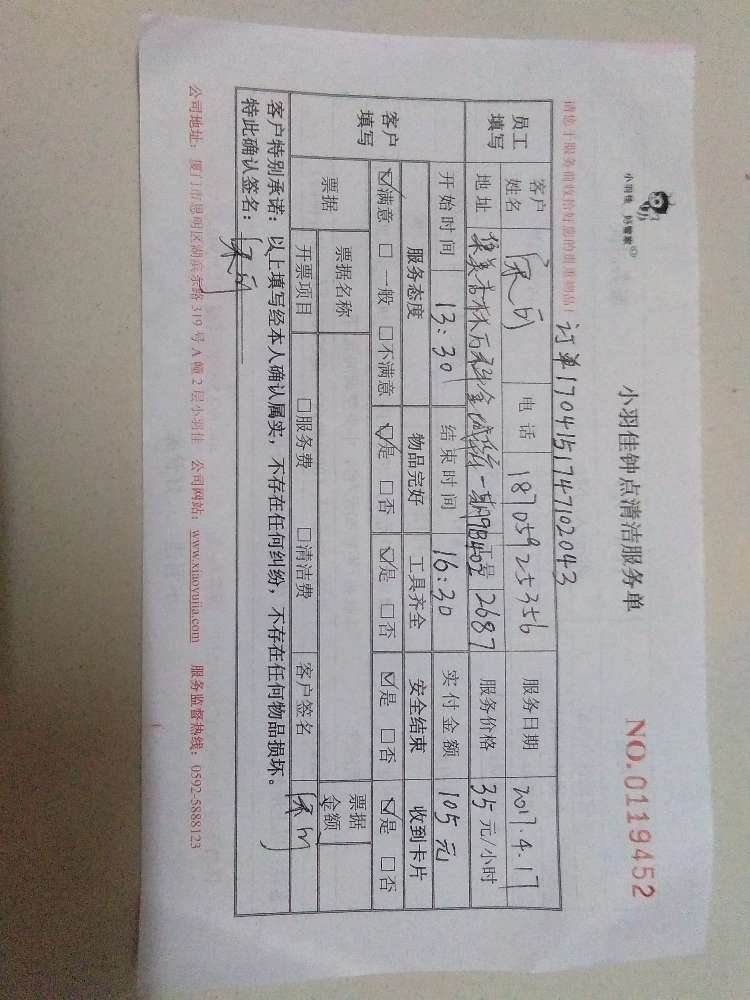 小羽佳 好管家
小羽佳钟点清洁服务单
NO.0119452
请您于服务前收拾好您的贵重物品！
订单170415174710 2043
员工填写
客户姓名
电话 18705925356
服务日期 2017.4.17
地址 集美杏林万科金域华府一期9B402
工号 2687
服务价格 35元/小时
开始时间 13:30
结束时间 16:30
实付金额 105元
客户填写
服务态度 物品完好 工具齐全 安全结束 收到卡片
☑满意 □一般 □不满意 ☑是 □否 ☑是 □否 ☑是 □否 ☑是 □否
票据 票据名称 票据金额
开票项目 □服务费 □清洁费 客户签名
客户特别承诺：以上填写经本人确认属实，不存在任何纠纷，不存在任何物品损坏。
特此确认签名：
公司地址：厦门市思明区湖滨东路319号A幢2层小羽佳 公司网站：www.xiaoyujia.com 服务监督热线：0592-5888123